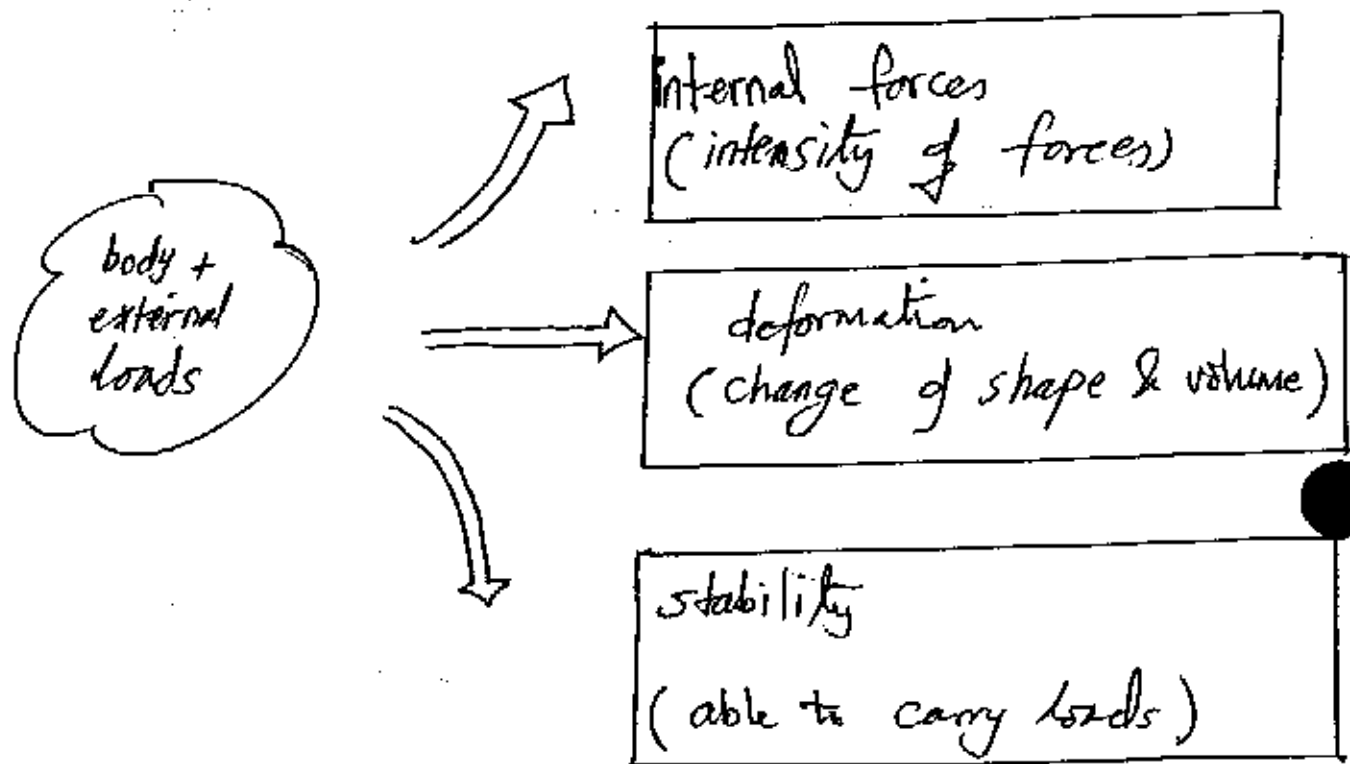 body +
external
loads
internal forces
(intensity of forces)
deformation
(change of shape & volume)
stability
(able to carry loads)